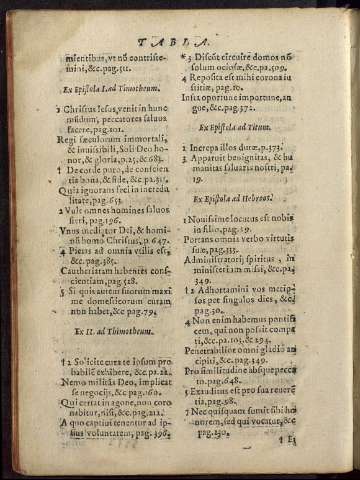 TABLA.
mientibus, vt nō contriste-
mini, &c. pag. 511.
Ex Epistola I. ad Timotheum.
1 Christus Iesus, venit in hunc
mūdum, peccatores saluos
facere, pag. 101.
Regi sæculorum immortali,
& inuisibili, Soli Deo ho-
nor, & gloria, p. 25, & 683.
1 De corde puro, de conscien-
tia bona, & fide, &c. pa. 311.
Quia ignorans feci in incredu
litate, pag. 653.
2 Vult omnes homines saluos
fieri, pag. 196.
Vnus mediator Dei, & homi-
nū homo Christus, p. 647.
4 Pietas ad omnia vtilis est,
&c. pag. 385.
Cautheriatam habentes cons-
cientiam, pag. 518.
5 Si quis autem suorum maxi
me domesticorum curam
non habet, &c. pag. 79.
Ex II. ad Thimotheum.
2 Solicite cura te ipsum pro
babilē exhibere, &c. pa. 22.
Nemo militās Deo, implicat
se negocijs, &c. pag. 160.
Qui certat in agone, non coro
nabitur, nisi, &c. pag. 212.
A quo captiui tenentur ad ip-
sius voluntatem, pag. 396.
*3 Discūt circuire domos nō
solum ociosæ, &c. pa. 509.
4 Reposita est mihi corona iu
stitiæ, pag. 10.
Insta oportune importune, ar-
gue, &c. pag. 372.
Ex Epistola ad Titum.
1 Increpa illos duræ, p. 373.
3 Apparuit benignitas, & hu
manitas saluatis nostri, pa.
19.
Ex Epistola ad Hebræos.
1 Nouissime locutus est nobis
in filio, pag. 19.
Portans omnia verbo virtutis
suæ, pag. 335.
Administratorij spiritus, in
ministerium missi, &c. pa.
349.
Adhortamini vos metip-
sos per singulos dies, &c.
pag. 30.
4 Non enim habemus pontifi
cem, qui non possit compa
ti, &c. pa. 103, & 294.
Penetrabilior omni gladio an
cipiti, &c. pag. 349.
Pro similitudine absque pecca
to pag. 648.
5 Exauditus est pro sua reuerē
tia, pag. 98.
7 Nec quisquam sumit sibi ho
norem, sed qui vocatur, &c
pag. 230.